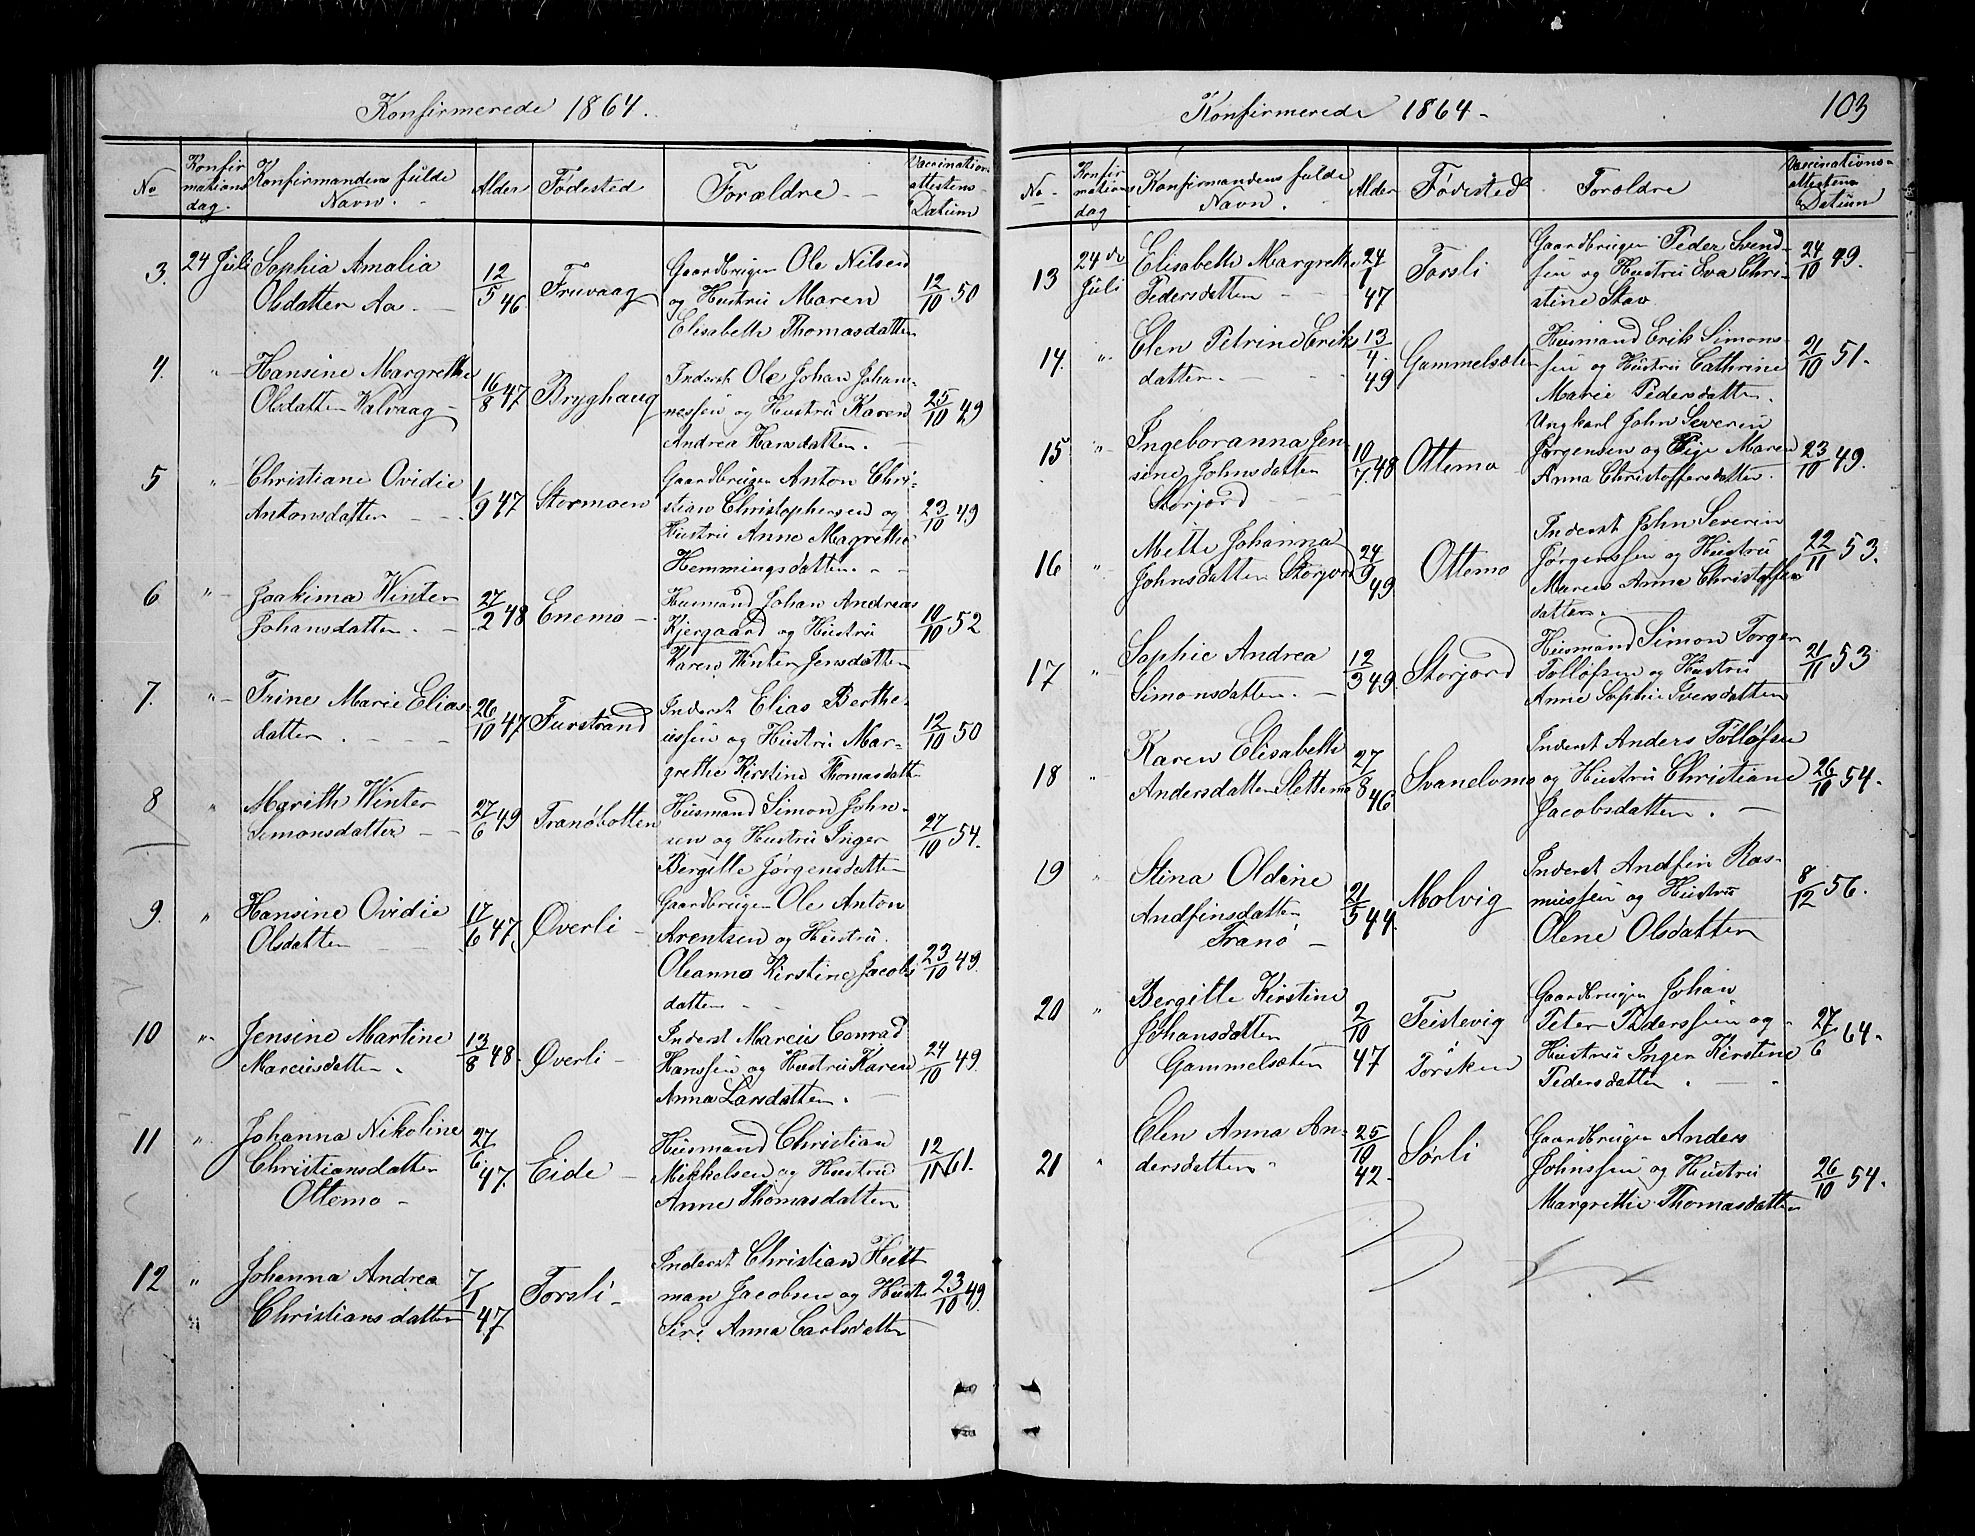 Konfirmerede 1864.
No
Konfirmations dag.
Konfirmandens fulde Navn.
Alder
Fødested
Forældre
Vaccinations attestens Datum
3. 24 Juli Sophia Amalia 12/5 46 Fruvaag Gaardbruger Ole Nilsen 12/10 50
Olsdatter Aa. og Hustru Maren
Elisabeth Thomasdatter
4. " Hansine Margrethe 16/8 47 Bryghaug Inderst Ole Johan Johan- 25/10 49
Olsdatter Valvaag nessen og Hustru Karen
Andrea Hansdatter.
5 " Christiane Ovidie 1/9 47 Stormoen Gaardbruger Anton Chri- 23/10 49
Antonsdatter stian Christophersen og
Hustru Anne Magrethe
Hemmingsdatter.
6 " Joakima Winter 27/2 48 Enemo Husmand Johan Andreas 10/10 52
Johansdatter. Kjergaard og Hustru
Karen Winter Jensdatter
7. " Trine Marie Elias- 26/10 47 Furstrand Inderst Elias Berthe- 12/10 50
datter. ussen og Hustru Mar-
grethe Kirstine Thomasdatt
8 " Marith Winter 27/6 49 Tranøbotten Husmand Simon John- 27/10 54.
Simonsdatter sen og Hustru Inger
Bergitte Jørgensdatter
9. " Hansine Ovidie 17/6 47. Øverli Gaardbruger Ole Anton 23/10 49.
Olsdatter Arentsen og Hustru
Oleanna Kirstine Jacobs
datter
10 " Jensine Martine 13/8 48. Øverli Inderst Marcus Conrad 24/10 49.
Marcusdatter. Hanssen og Hustru Karen
Anna Larsdatter.
11 " Johanna Nikoline 27/6 47. Eide Husmand Christian 12/11 61.
Christiansdatter Mikkelsen og Hustru
Ottemo Anne Thomasdatter
12 " Johanna Andrea 7/1 47 Torsli Inderst Christian Hett 23/10 49.
Christiansdatter man Jacobsen og Hustr
Siri Anna Carlsdatter
Konfirmerede 1864.
103
No.
Konfirmations dag
Konfirmandens fulde Navn.
Alder
Fødested
Forældre
Vaccinations- attestens Datum
13 24de Juli Elisabeth Margrethe 24/1 47 Torsli Gaardbruger Peder Svend- 24/10 49.
Pedersdatter sen og Hustru Eva Chri-
stine Stav
14. " Elen Petrine Eriks 13/4 49 Gammelsæter Husmand Erik Simons- 21/10 51.
datter. sen og Hustru Cathrine
Marie Pedersdatter.
15 " Ingeboranna Jen- 10/7 48 Ottemo Ungkarl John Severin 23/10 49.
sine Johnsdatter Jørgensen og Pige Maren
Storjord Anna Christoffersdatter.
16 " Mette Johanna 24/9 49 Ottemo Inderst John Severin 22/11 53.
Johnsdatter Storjord Jørgenssen og Hustru
Maren Anna Christoffer
datter.
17 " Sophie Andrea 12/3 49. Storjord Husmand Simon Torger 21/11 53
Simonsdatter. Tolløfsen og Hustru
Anne Sophie Iversdatter
18 " Karen Elisabeth 27/8 46 Svanelvmo Inderst Anders Tølløfsen 26/10 54.
Andersdatter Slettemo og Hustru Christiane
Jacobsdatter.
19 " Stina Oldine 21/5 44. Molvig Inderst Andfin Ras- 8/12 56.
Andfinsdatter mussen og Hustru
Tranø Olene Olsdatter
20 " Bergitte Kirstine 2/10 47 Teistevig Gaardbruger Johan 27/6 64.
Johansdatter Torsken Peter Pederssen og
Gammelsæter Hustru Inger Kirstine
Pedersdatter.
21 " Elen Anna An- 25/10 42. Sørli Gaardbruger Anders 26/10 54.
dersdatter Johnssen og Hustru
Margrethe Thomasdatter